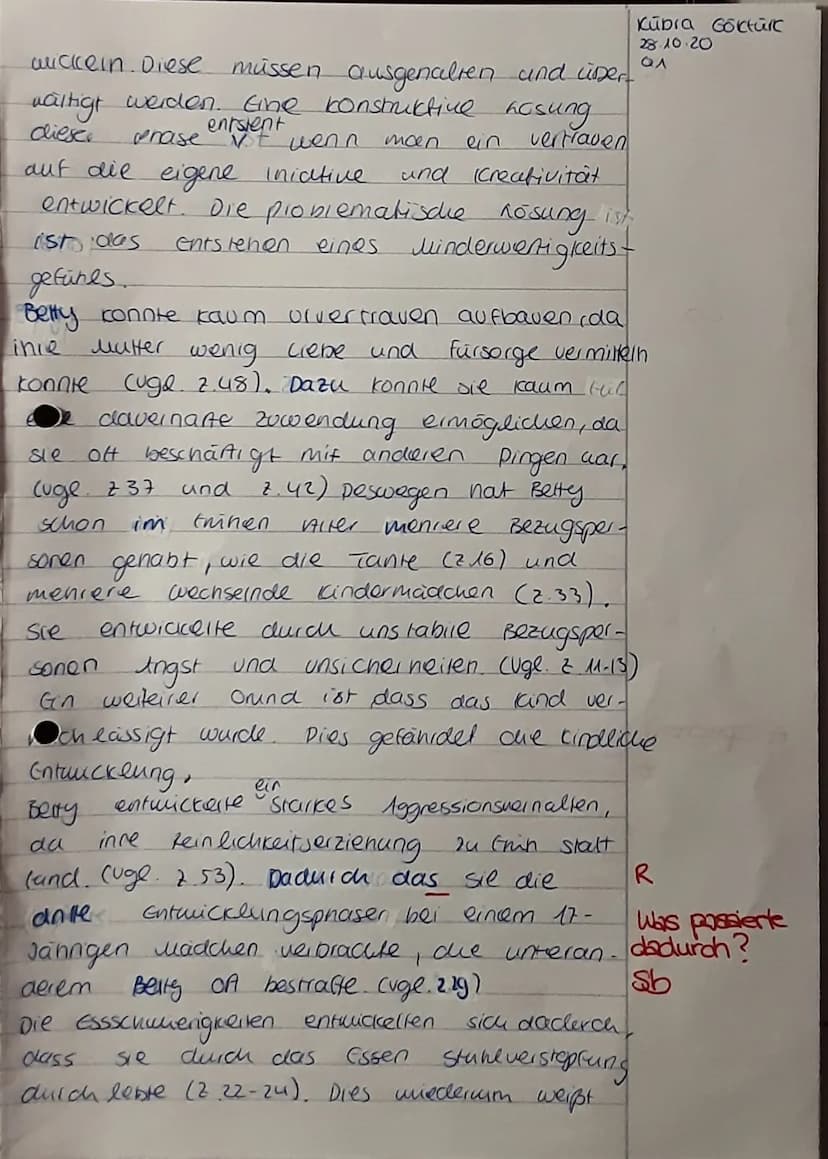 Kübra Göktürk
28.10.20
Q1
wickeln. Diese müssen ausgehalten und über-
wältigt werden. Eine konstruktive Lösung
diese Phase entsteht wenn man ein vertrauen
auf die eigene Iniative und Kreativität
entwickelt. Die problematische Lösung ist
ist, das entstehen eines Minderwertigkeits-
gefühles.
Betty konnte kaum Urvertrauen aufbauen, da
ihre Mutter wenig Liebe und Fürsorge vermitteln
konnte (vgl. Z.48). Dazu konnte sie kaum
dauerhafte Zuwendung ermöglichen, da
sie oft beschäftigt mit anderen Dingen war.
(vgl. Z 37 und Z.42) Deswegen hat Betty
schon im frühen Alter mehrere Bezugsper-
sonen gehabt, wie die Tante (Z 16) und
mehrere wechselnde Kindermädchen (Z.33).
Sie entwickelte durch unstabile Bezugsper-
sonen Angst und unsicherheiten. (Vgl. Z 11-13)
Ein weiterer Grund ist dass das Kind ver-
chlässigt wurde. Dies gefährdet die kindliche
Entwicklung.
Betty entwickelte ein starkes Aggressionsverhalten,
da ihre Reinlichkeitserziehung zu früh statt
fand. (vgl. Z 53). Dadurch das sie die
anale Entwicklungsphasen bei einem 17-
Jährigen Mädchen verbrachte, die unteran-
derem Betty oft bestrafte. (vgl. Z 29)
Die Essschwierigkeiten entwickelten sich daderch,
dass sie durch das Essen Stuhlverstopfung
durchlebte (Z 22-24). Dies wiederum weißt
R
Was passierte
dadurch?
Sb